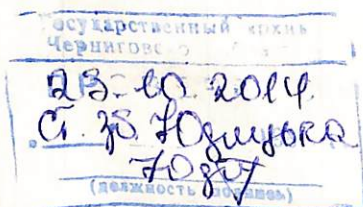 Государственный архив
Черниговс
23.10.2014
Ст. зб. Юдицька
(должность подпись)